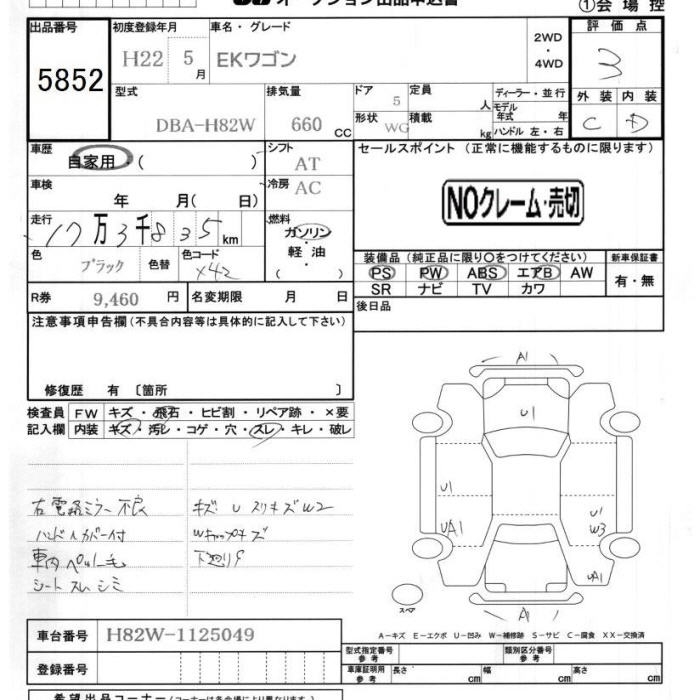 オークション出品申込書
①会場控
出品番号 初度登録年月 車名・グレード 評価点
5852 H22 5月 EKワゴン 2WD・4WD 3
型式 排気量 ドア 定員 ディーラー・並行 外装 内装
DBA-H82W 660 CC 5 人 モデル年式 年 C D
形状 WG 積載 kg ハンドル 左・右
車歴 シフト セールスポイント (正常に機能するものに限ります)
自家用・( ) AT
車検 冷房
年 月( 日) AC NOクレーム・売切
走行 燃料
17万3千835km ガソリン・軽油・( )
色 色替 色コード 装備品 (純正品に限り○をつけてください) 新車保証書
ブラック X42 PS PW ABS エアB AW 有・無
SR ナビ TV カワ
R券 9,460円 名変期限 月 日 後日品
注意事項申告欄 (不具合内容等は具体的に記入して下さい)
修復歴 有 〔箇所 〕
検査員 FW キズ・飛石・ヒビ割・リペア跡・×要
記入欄 内装 キズ・汚レ・コゲ・穴・スレ・キレ・破レ
右電格ミラー不良 キズ U スリキズ W2
ハンドルカバー付 Wキャップキズ
車内ペット毛 下廻りサ
シート スレ シミ
A1
U1
U1 U1
UA1 W3
UA1
A1
スペア
A-キズ E-エクボ U-凹み W-補修跡 S-サビ C-腐食 XX-交換済
車台番号 H82W-1125049 型式指定番号 参考 類別区分番号 参考
登録番号 車庫証明用 参考 長さ cm 幅 cm 高さ cm
希望出品コーナー (コーナーは各会場により異なります)